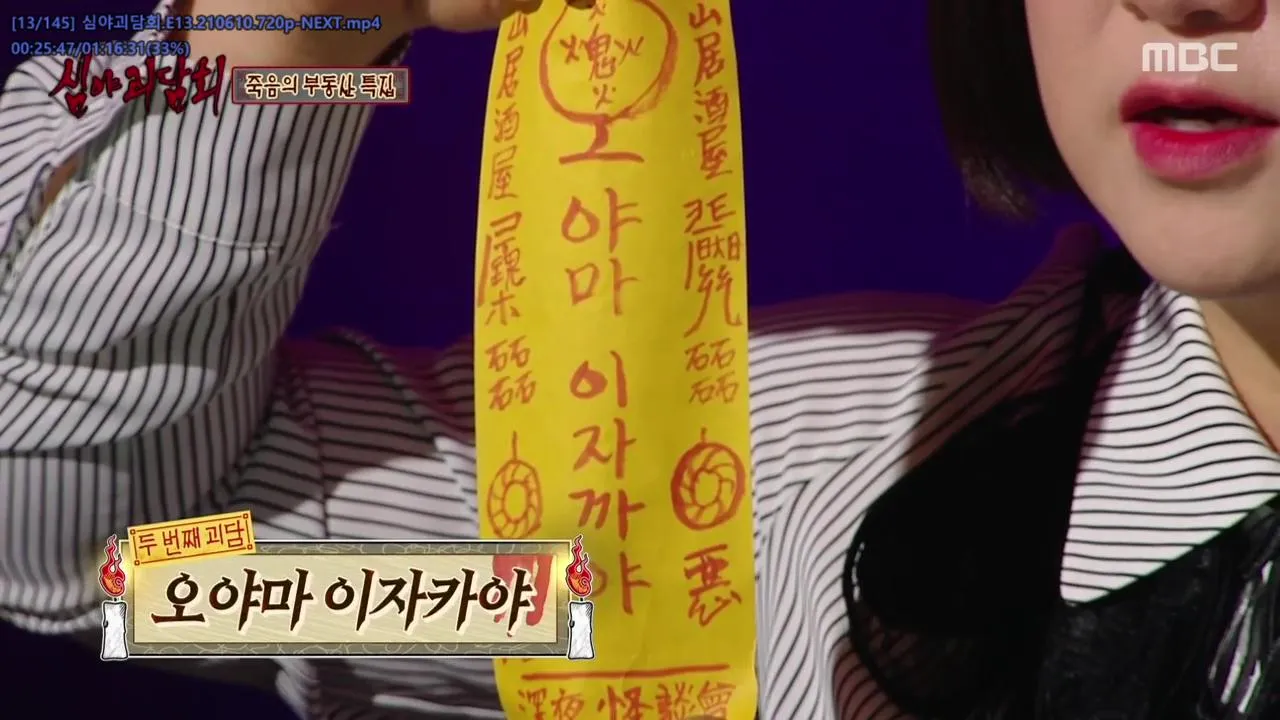 [13/145] 심야괴담회.E13.210610.720p-NEXT.mp4
00:25:47/01:16:31(33%)
심야괴담회
죽음의 부동산 특집
MBC
山居酒屋
磊
오야마 이자까야
山居酒屋
磊
惡
深夜怪談會
두 번째 괴담
오야마 이자카야